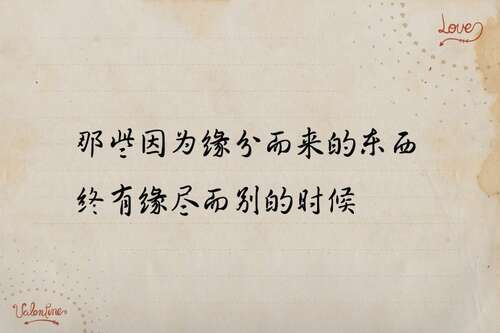 Love
那些因为缘分而来的东西
终有缘尽而别的时候
Valentine